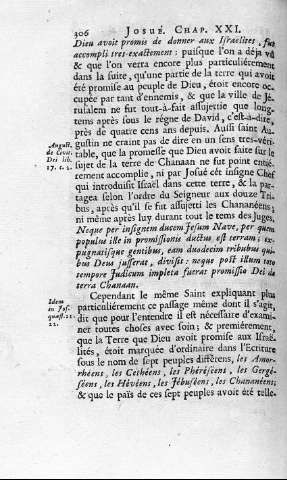 306 JOSUÉ. CHAP. XXI.
Dieu avoit promis de donner aux Israëlites, fut
accompli tres-exactement: puisque l'on a déja vû
& que l'on verra encore plus particuliérement
dans la suite, qu'une partie de la terre qui avoit
été promise au peuple de Dieu, étoit encore oc-
cupée par tant d'ennemis, & que la ville de Jé-
rusalem ne fut tout-à-fait assujettie que long-
tems après sous le régne de David, c'est-à-dire,
près de quatre cens ans depuis. Aussi saint Au-
gustin ne craint pas de dire en un sens tres-véri-
table, que la promesse que Dieu avoit faite sur le
sujet de la terre de Chanaan ne fut point entié-
rement accomplie, ni par Josué cét insigne Chef
qui introduisit Israël dans cette terre, & la par-
tagea selon l'ordre du Seigneur aux douze Tri-
bus, après qu'il se fut assujetti les Chananéens;
ni même après luy durant tout le tems des Juges,
Neque per insignem ducem Jesum Nave, per quem
populus ille in promissionis ductus est terram; ex-
pugnatisque gentibus, eam duodecim tribubus qui-
bus Deus jusserat, divisit: neque post illum toto
tempore Judicum impleta fuerat promissio Dei de
terra Chanaan.
August.
de Civit.
Dei lib.
17. c. 2.
Cependant le même Saint expliquant plus
particuliérement ce passage même dont il s'agit,
dit que pour l'entendre il est nécessaire d'exami-
ner toutes choses avec soin; & premiérement,
que la Terre que Dieu avoit promise aux Israë-
lités, étoit marquée d'ordinaire dans l'Ecriture
sous le nom de sept peuples différens, les Amor-
rhéens, les Cethéens, les Phéréséens, les Gergé-
séens, les Hévéens, les Jébuséens, les Chananéens;
& que le païs de ces sept peuples avoit été telle-
Idem
in Jos.
quæst. 21.
22.